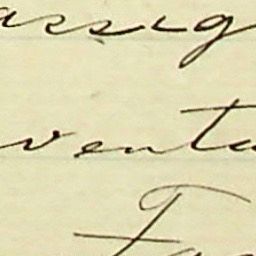 assig
venta
Fra